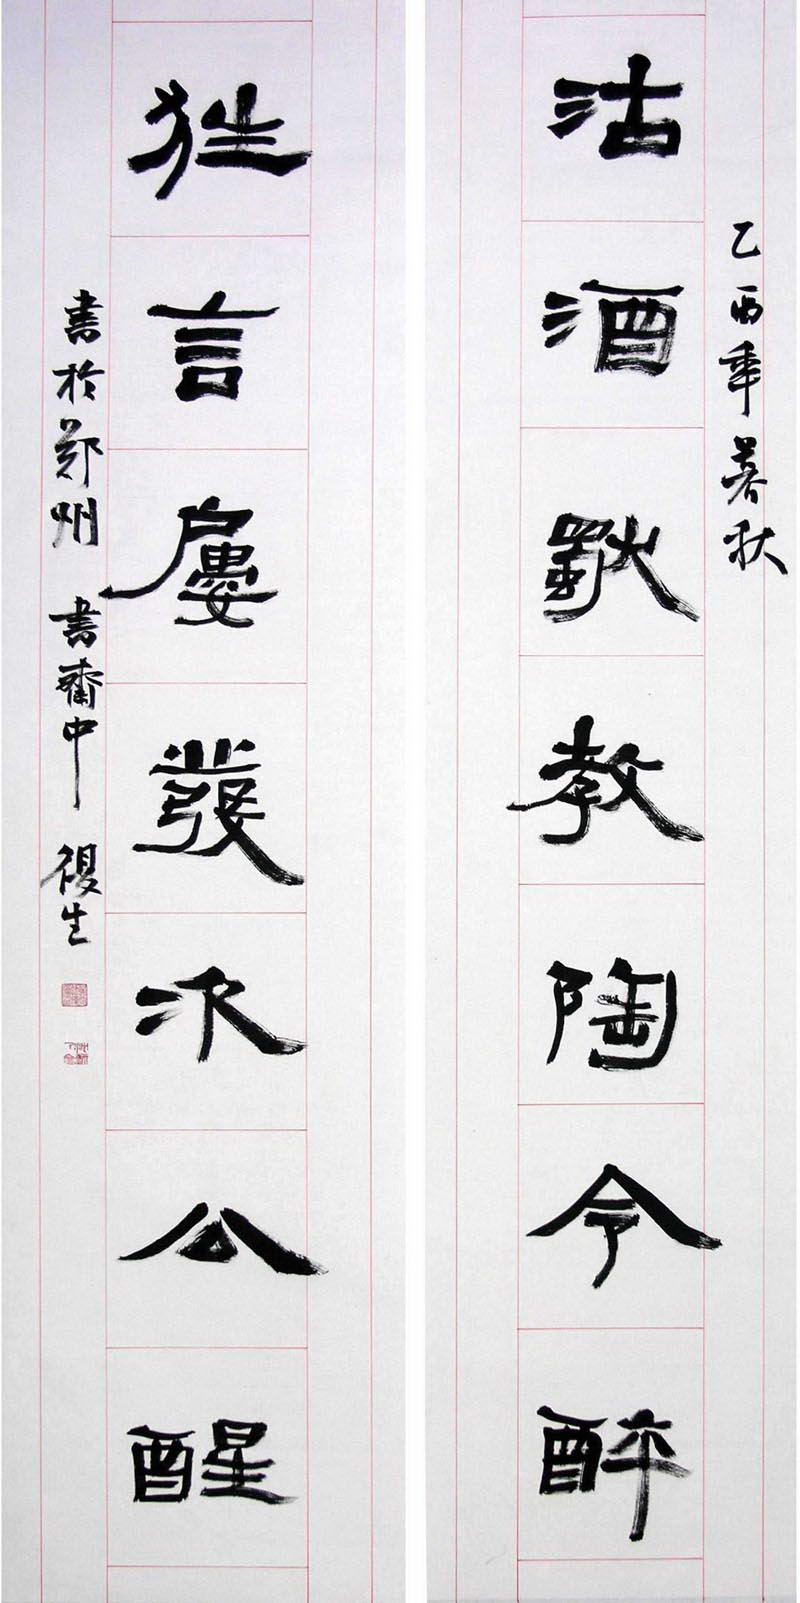 乙酉年暮秋
沽酒獨教陶令醉
狂言屢發次公醒
書於郑州 書齋中 復生